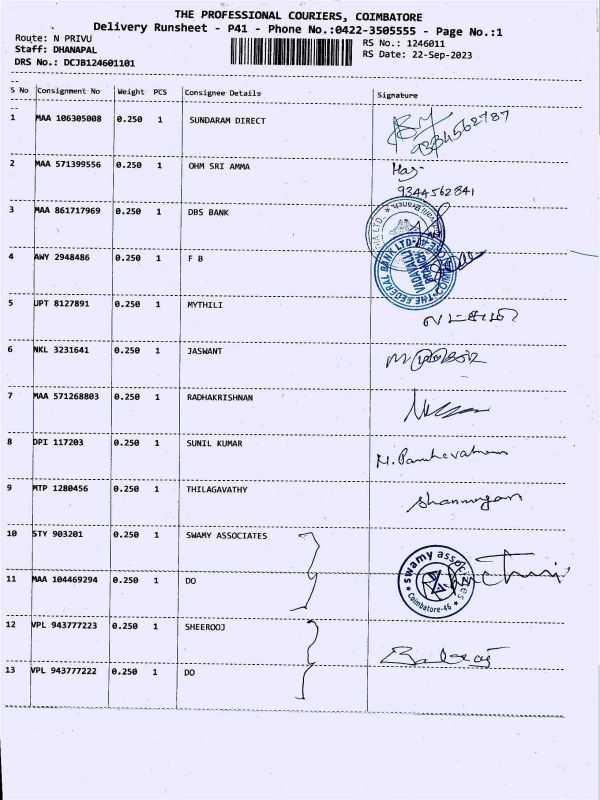 THE PROFESSIONAL COURIERS, COIMBATORE
Delivery Runsheet - P41 - Phone No.:0422-3505555 - Page No.:1
Route: N PRIVU
RS No.: 1246011
Staff: DHANAPAL
RS Date: 22-Sep-2023
DRS No.: DCJB124601101
S No Consignment No Weight PCS Consignee Details Signature
1 MAA 106305008 0.250 1 SUNDARAM DIRECT
2 MAA 571399556 0.250 1 OHM SRI AMMA
9344562841
3 MAA 861717969 0.250 1 DBS BANK
4 AWY 2948486 0.250 1 F B
THE FEDERAL BANK LTD
VADAVALLI
5 UPT 8127891 0.250 1 MYTHILI
6 NKL 3231641 0.250 1 JASWANT
7 MAA 571268803 0.250 1 RADHAKRISHNAN
8 DPI 117203 0.250 1 SUNIL KUMAR
9 MTP 1280456 0.250 1 THILAGAVATHY
Shanmugam
10 STY 903201 0.250 1 SWAMY ASSOCIATES
swamy associates
Coimbatore-46
11 MAA 104469294 0.250 1 DO
12 VPL 943777223 0.250 1 SHEEROOJ
13 VPL 943777222 0.250 1 DO